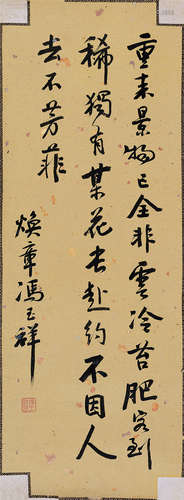 重来景物已全非雲冷苔肥客到
稀獨有某花长赴约不因人
去不芳菲
焕章馮玉祥